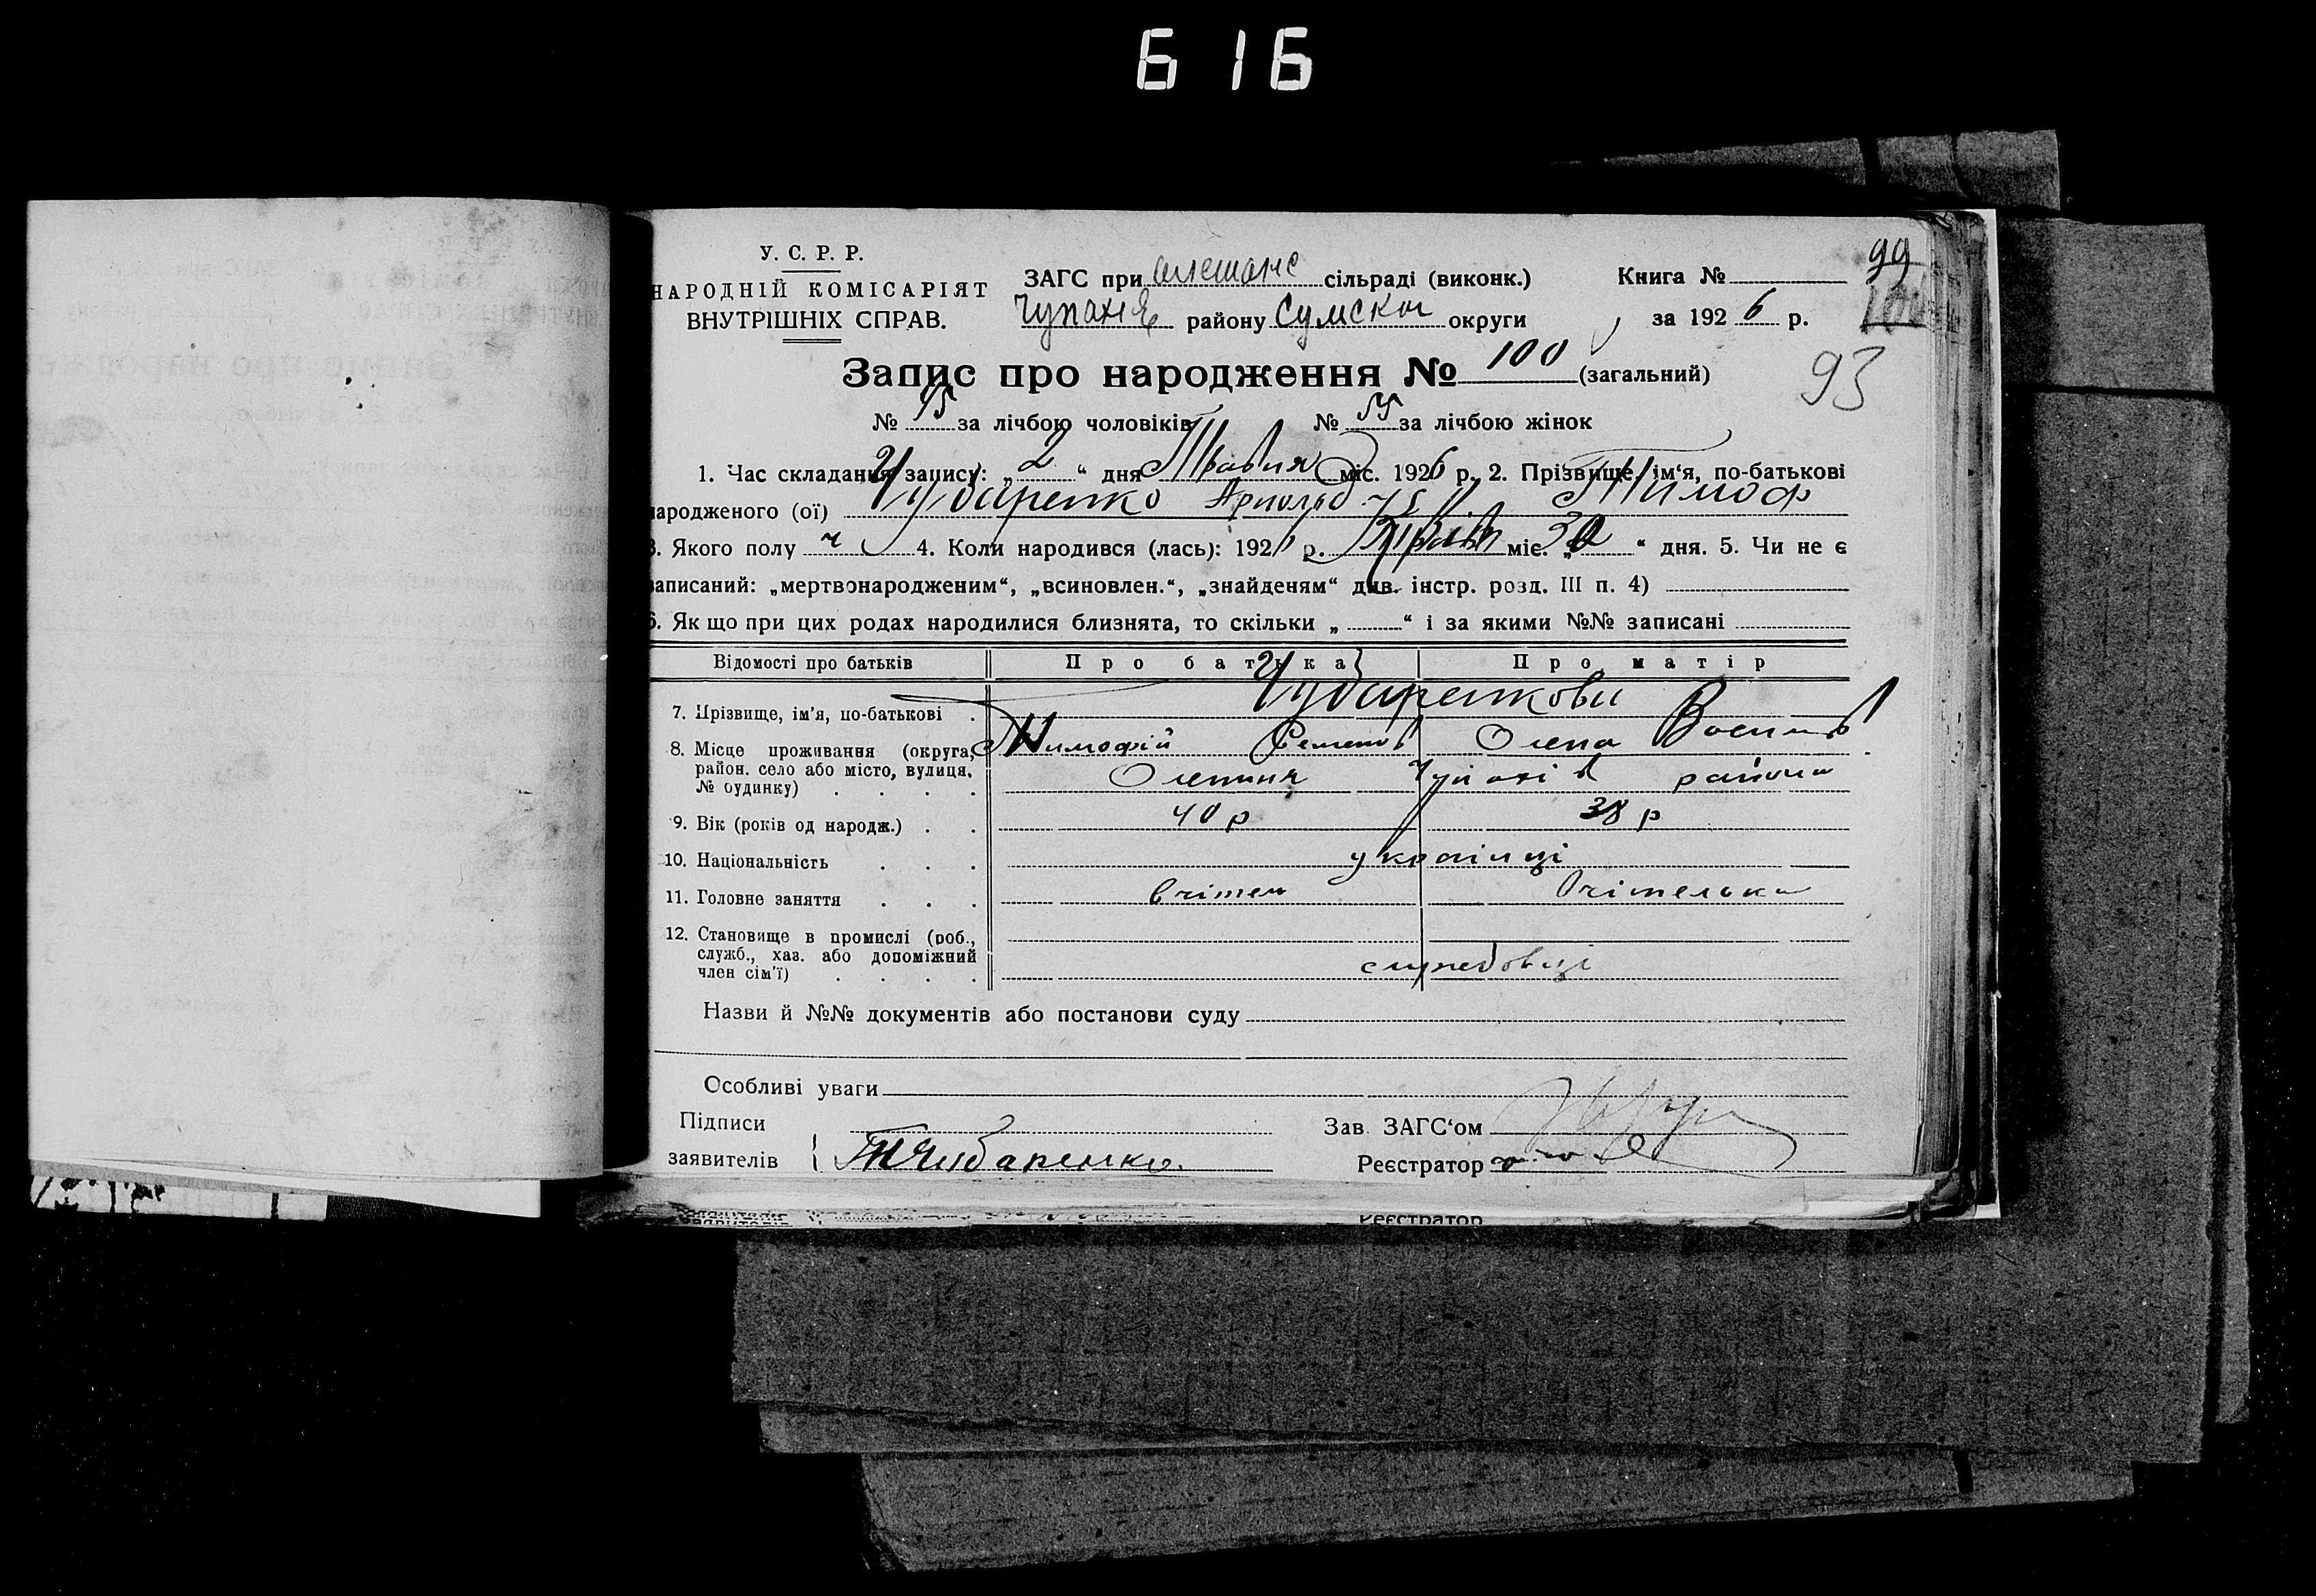 616
У. С. Р. Р.
НАРОДНІЙ КОМІСАРІЯТ
ВНУТРІШНІХ СПРАВ.
ЗАГС при алешанс сільраді (виконк.)
району Сумскої округи
Книга №
за 1926 р.
99
93
Запис про народження № 100 (загальний)
№ за лічбою чоловіків № 55 за лічбою жінок
1. Час складання запису: „ 2 “ дня Травня міс. 1926 р. 2. Прізвище, ім‘я, по-батькові
народженого (ої) Чубаренко Арнольд Тимоф
3. Якого полу ч 4. Коли народився (лась): 192 р. міс. „ 30 “ дня. 5. Чи не є
записаний: „мертвонародженим“, „всиновлен.“, „знайденям“ див. інстр. розд. III п. 4)
6. Якщо при цих родах народилися близнята, то скільки „ “ і за якими №№ записані
Відомості про батьків Про батька Про матір
7. Прізвище, ім'я, по-батькові Чубаренкови
Тимофій Семенов Олена Василів
8. Місце проживання (округа,
район. село або місто, вулиця,
№ будинку)
району
9. Вік (років од народж.) 40 р 38 р
10. Національність українці
11. Головне заняття вчітель Вчітелька
12. Становище в промислі (роб.,
служб., хаз. або допоміжний
член сім'ї) службовці
Назви й №№ документів або постанови суду
Особливі уваги
Підписи
заявителів ТЧубаренко.
Зав. ЗАГС‘ом
Реєстратор
заявителів
Реєстратор